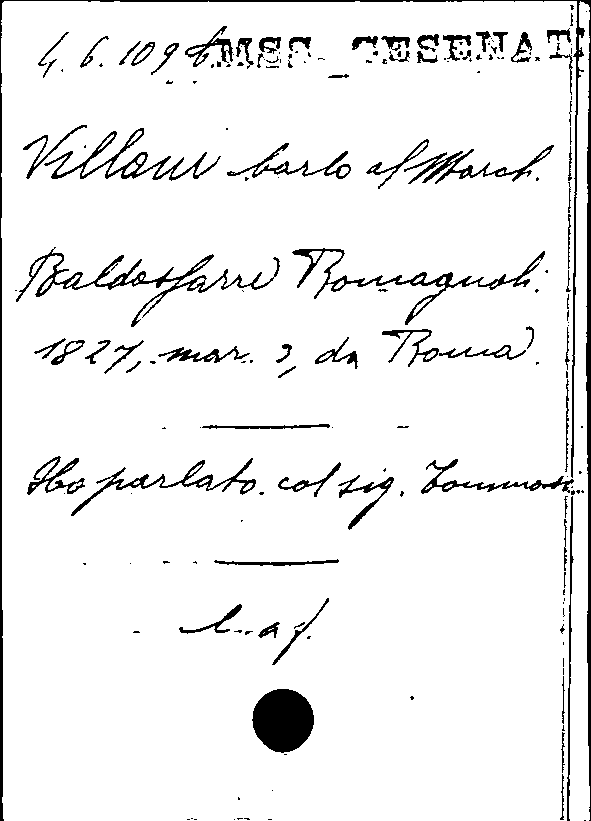 4.6.109 MSS. CESENATI
Villani Carlo al March.
Baldassarre Romagnoli.
1827, mar. 3, da Roma.
Ho parlato col sig. Tommasi
l. a f.